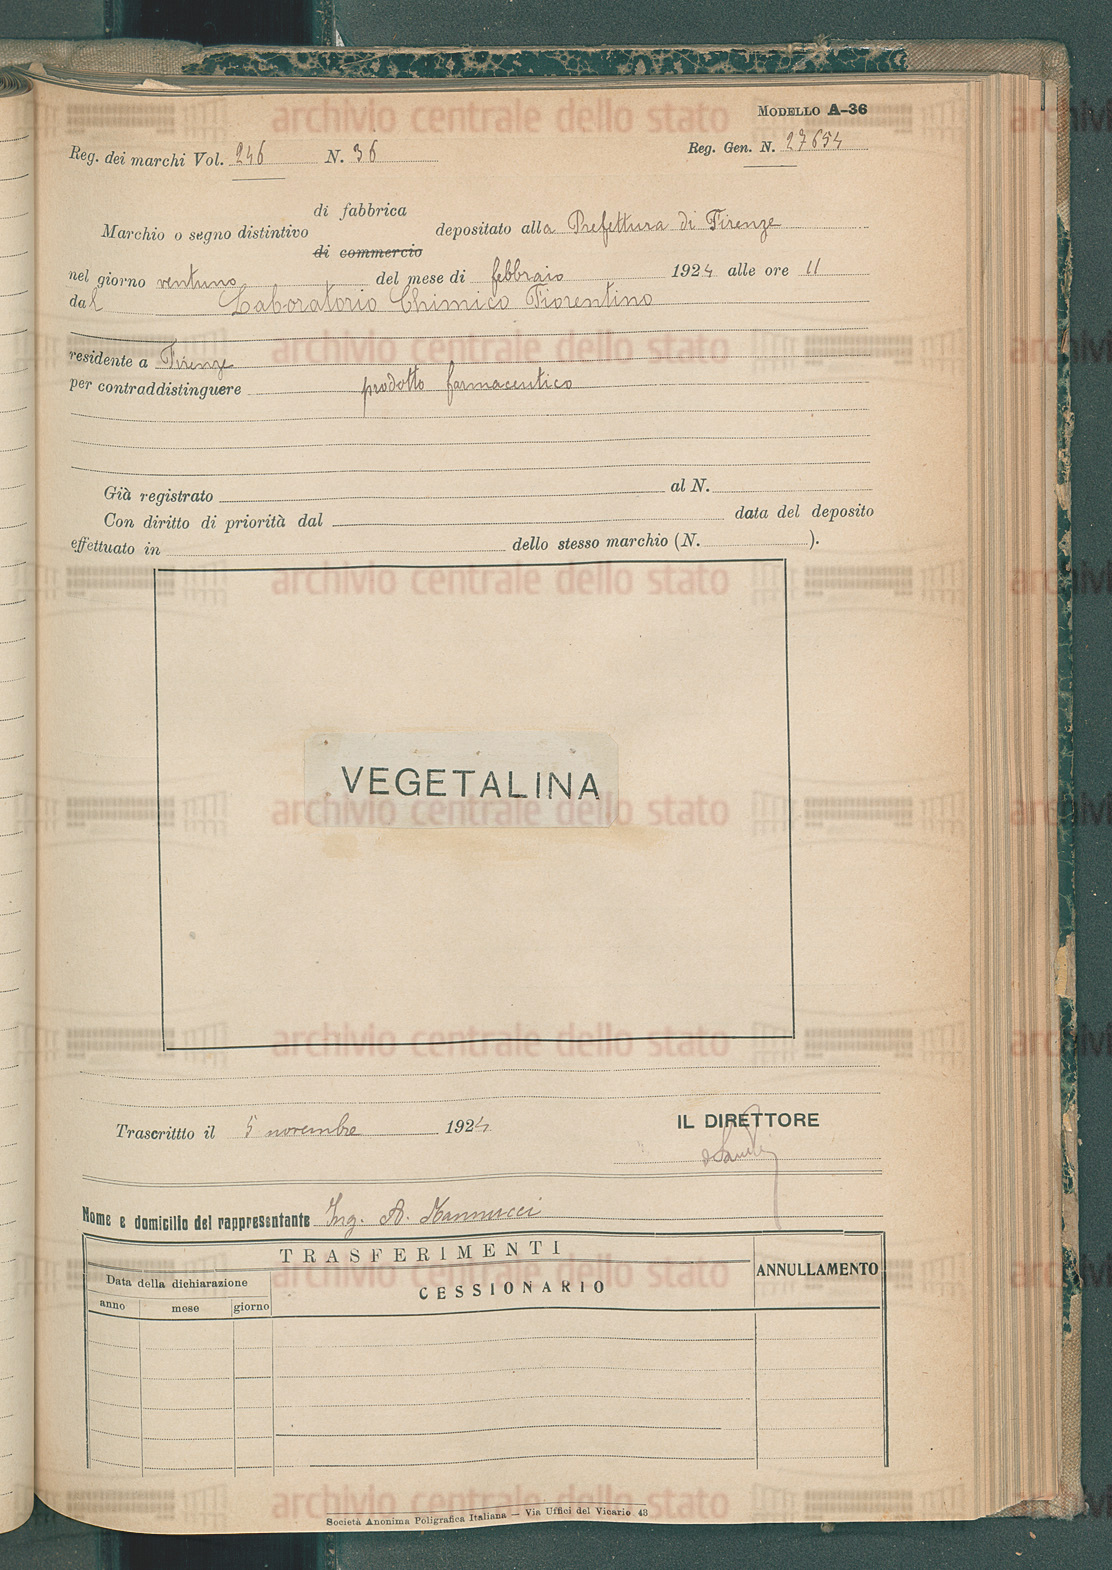 MODELLO A-36
Reg. dei marchi Vol. 246 N. 36 Reg. Gen. N. 27654
di fabbrica
Marchio o segno distintivo depositato alla Prefettura di Firenze
di commercio
nel giorno ventuno del mese di febbraio 1924 alle ore 11
dal Laboratorio Chimico Fiorentino
residente a Firenze
per contraddistinguere prodotto farmaceutico
Già registrato al N.
Con diritto di priorità dal data del deposito
effettuato in dello stesso marchio (N. ).
VEGETALINA
Trascrittto il 5 novembre 1924 IL DIRETTORE
Nome e domicilio del rappresentante Ing. A. Mannucci
TRASFERIMENTI
Data della dichiarazione CESSIONARIO ANNULLAMENTO
anno mese giorno
Società Anonima Poligrafica Italiana — Via Uffici del Vicario 43
archivio centrale dello stato